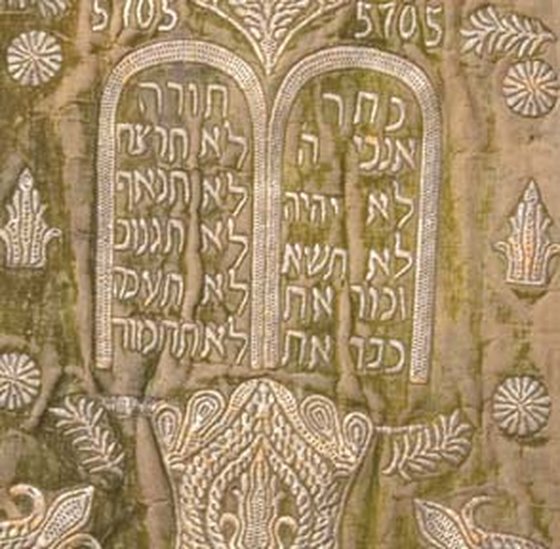 5705 5705
כתר
אנכי ה
לא יהיה
לא תשא
זכור את
כבד את
תורה
לא תרצח
לא תנאף
לא תגנוב
לא תענה
לא תחמוד